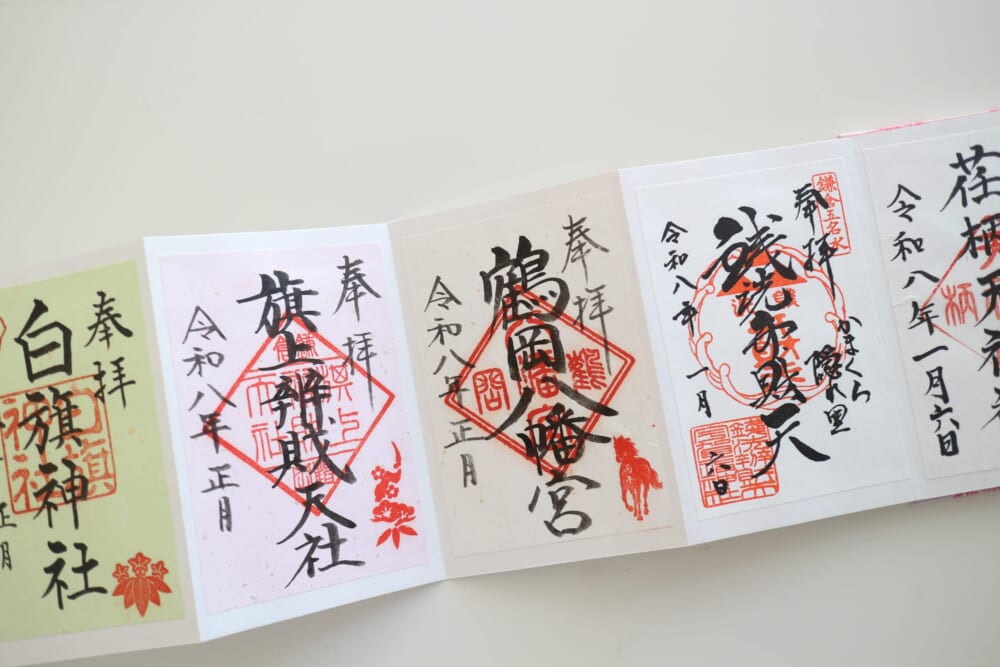 荏柄天神社
令和八年一月六日
鎌倉五名水
奉拝
かまくら
隠れ里
銭洗弁財天
令和八年一月
六日
奉拝
鶴岡八幡宮
令和八年正月
奉拝
旗上辨財天社
令和八年正月
奉拝
白旗神社
正月